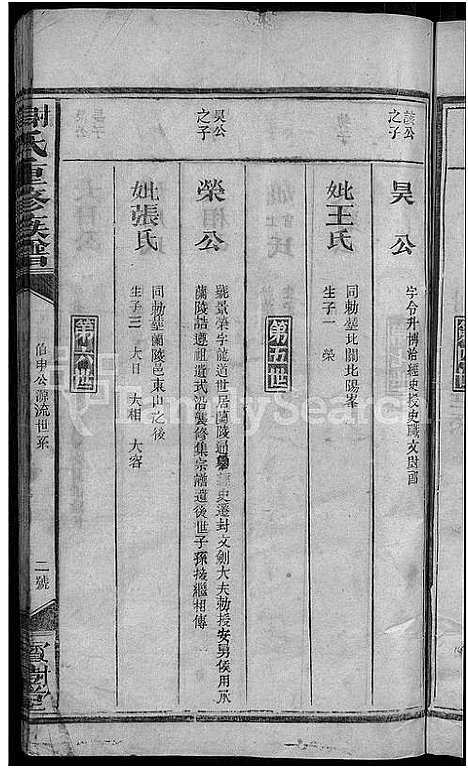 該公
之子
昊公
字令升博洽經史授史職文尉酉
妣王氏
同勅塟北關北陽峯
生子一 榮
第五世
昊公
之子
榮相公
號景榮字龍道世居蘭陵通經史遷封文劍大夫勅授安男侯用承
蘭陵誥遵祖遺式沿襲修集宗譜遺後世子孫接繼相傳
妣張氏
同勅塟蘭陵邑東山之後
生子三 大目 大相 大容
第六世
謝氏重修族譜
伯申公源流世系
二號
寶樹堂
FamilySearch